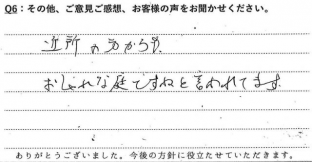 Q6：その他、ご意見ご感想、お客様の声をお聞かせください。
近所の方からも、
おしゃれな庭ですねと言われてます。
ありがとうございました。今後の方針に役立たせていただきます。